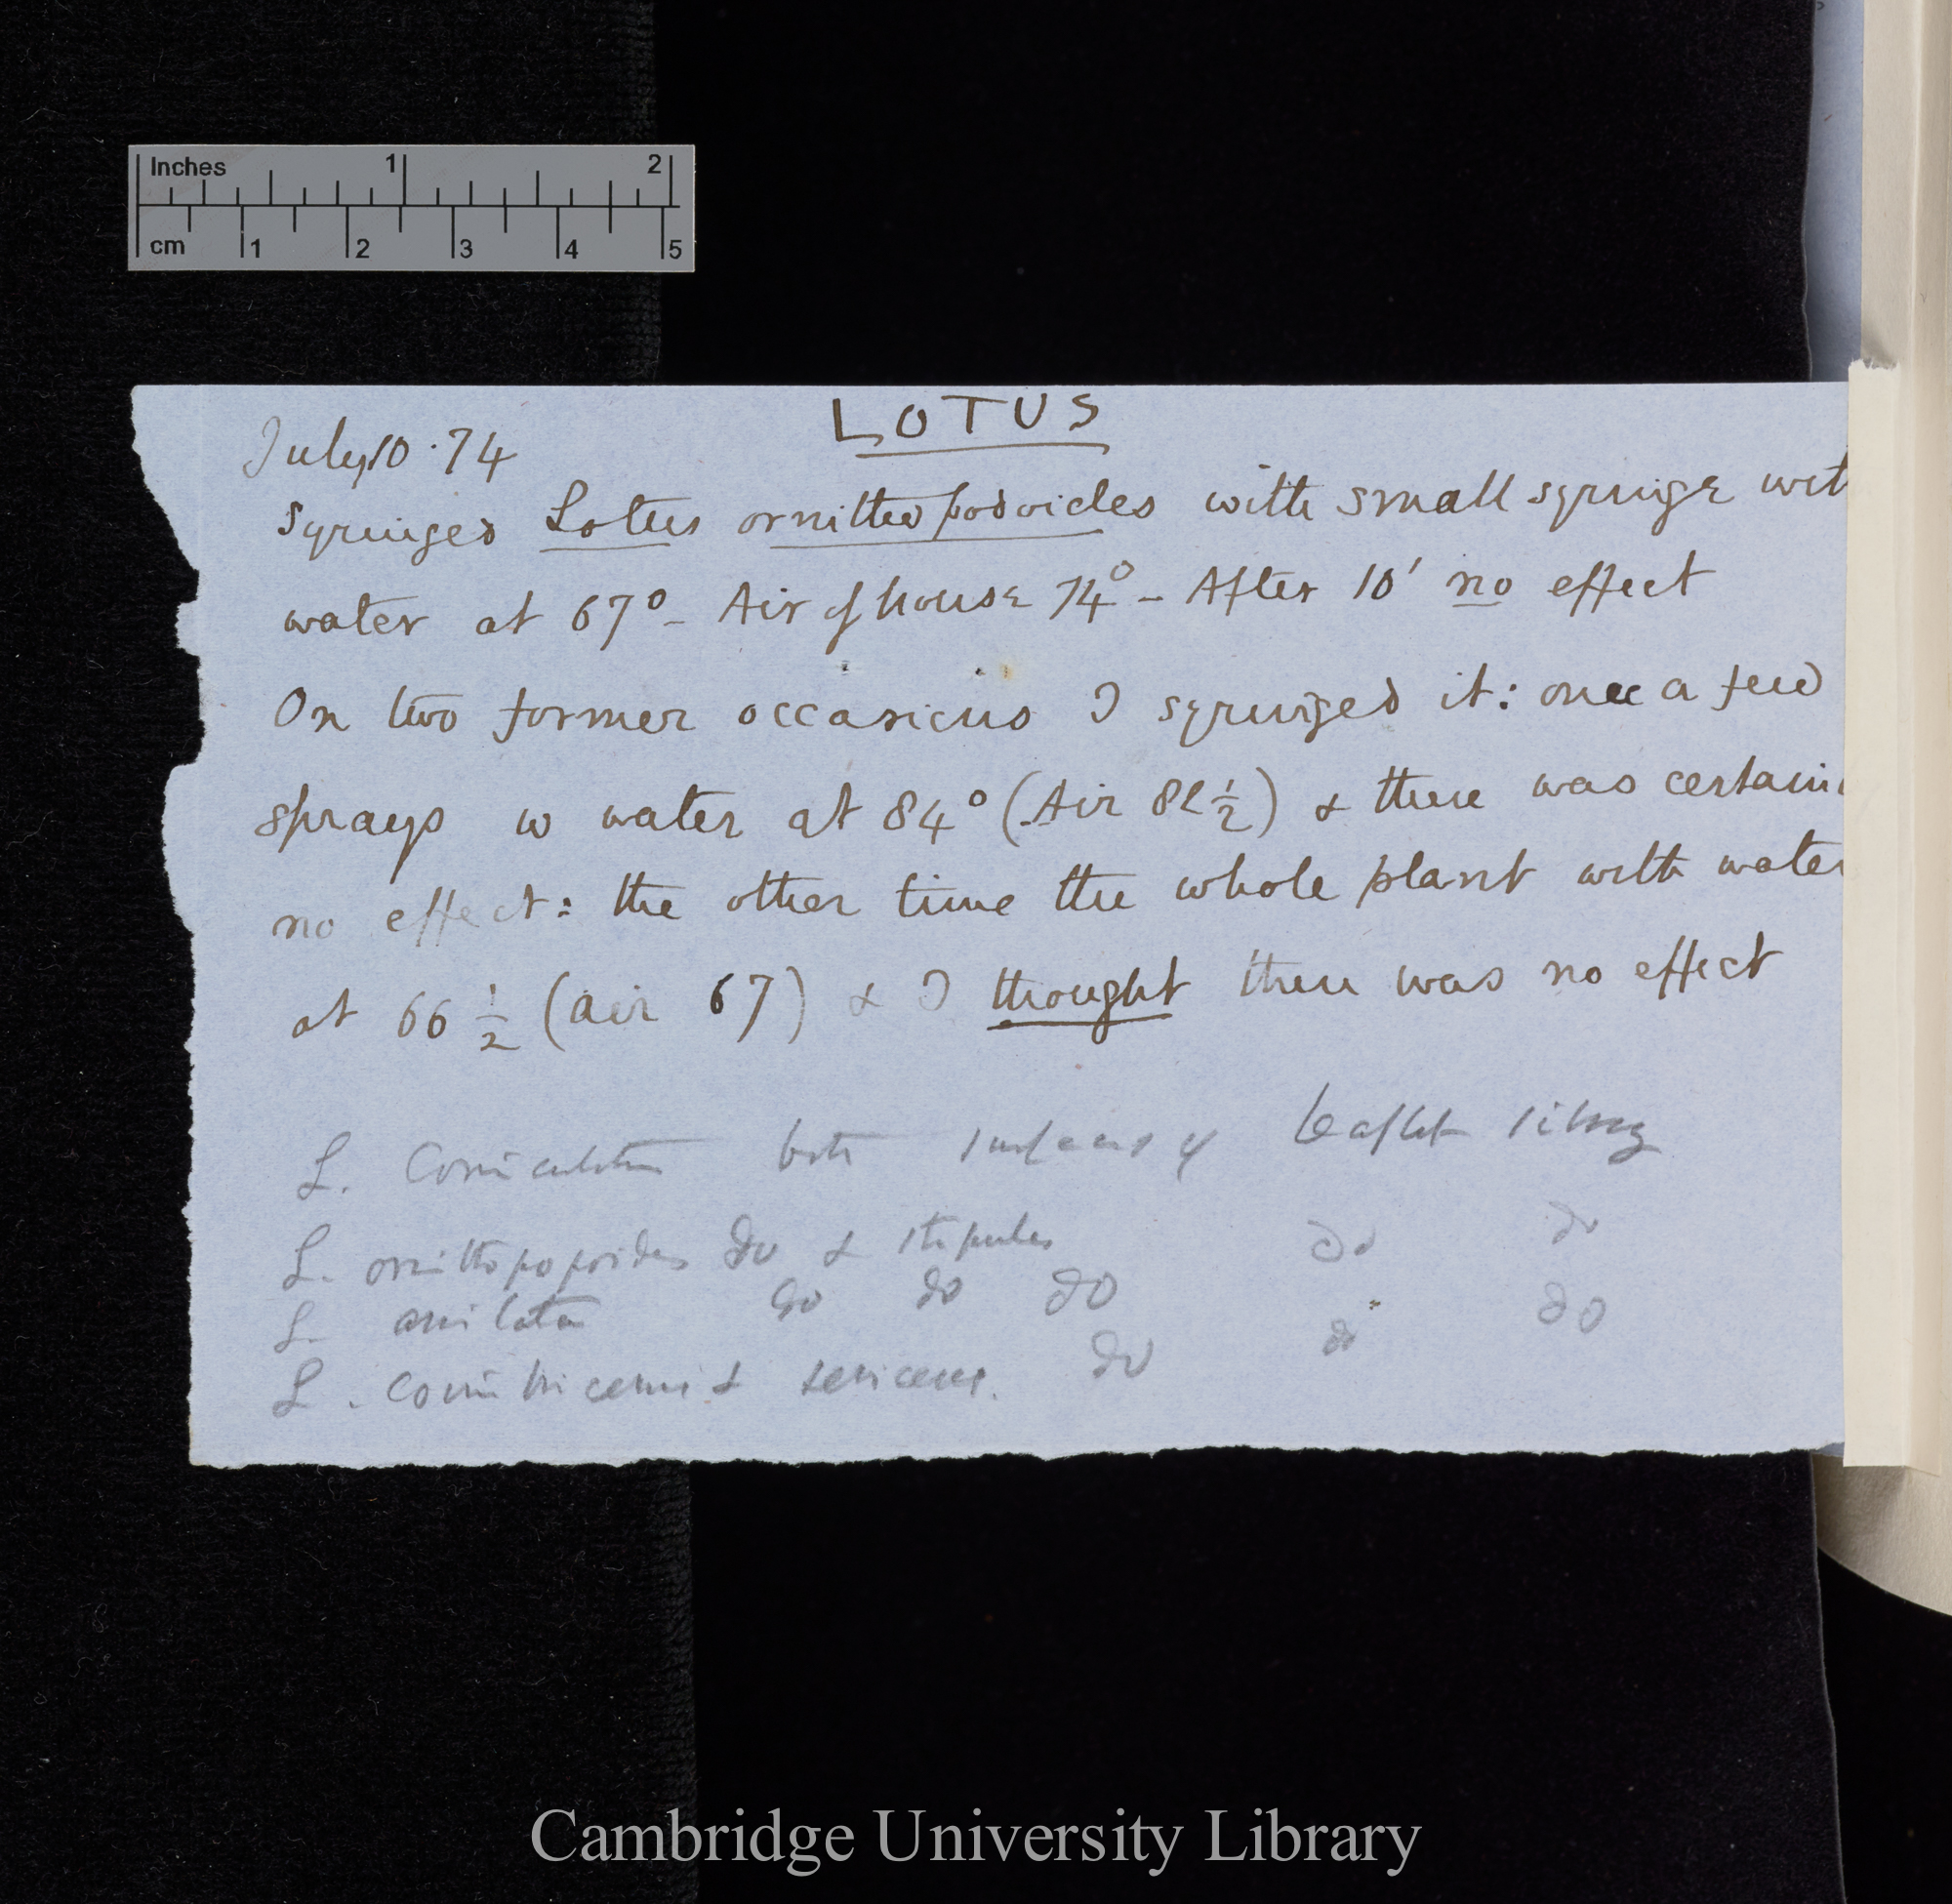 Inches 1 2
cm 1 2 3 4 5
LOTUS
July 10 · 74
Syringed Lotus ornithopodoides with small syringe wit
water at 67° – Air of house 74° – After 10' no effect
On two former occasions I syringed it: once a few
sprays w water at 84° (Air 82 1/2) & there was certain
no effect: the other time the whole plant with water
at 66 1/2 (air 67) & I thought there was no effect
L. Corniculatus both surfaces of leaflet
L. ornithopopoides do & stipules do do
L. do do do do
L. do do
Cambridge University Library